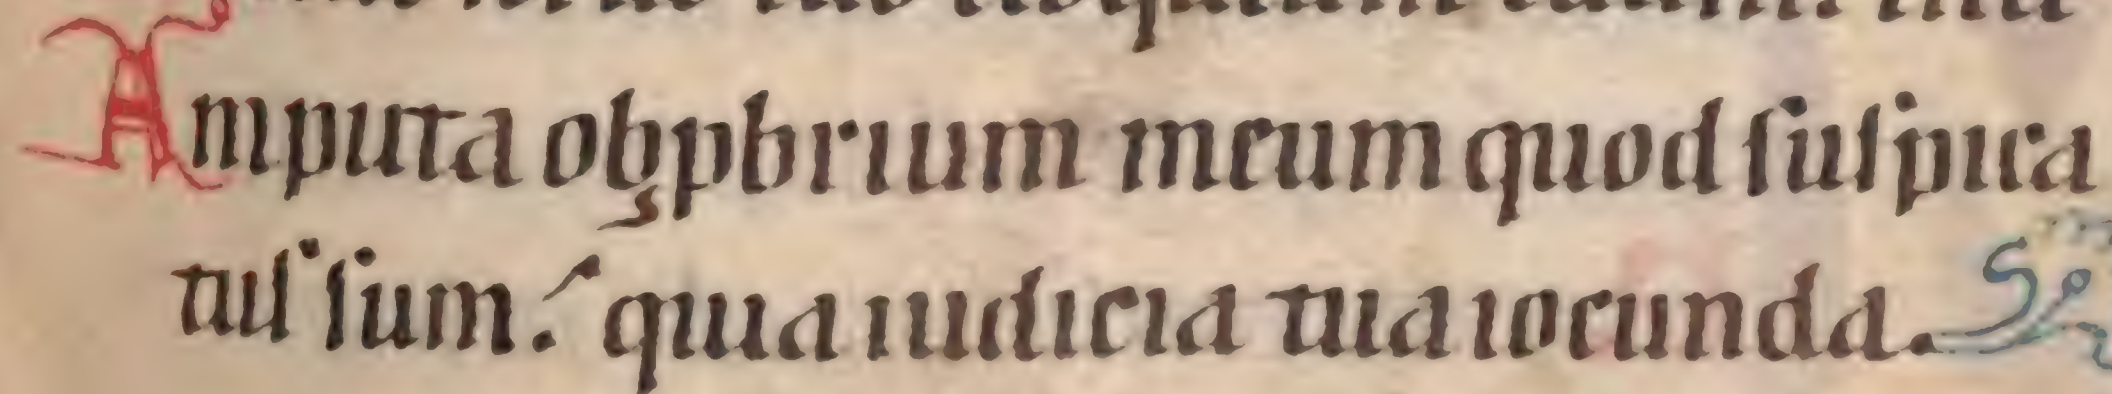 Amputa obꝓbrium meum quod suspica
tus sum. quia iudicia tua iocunda.